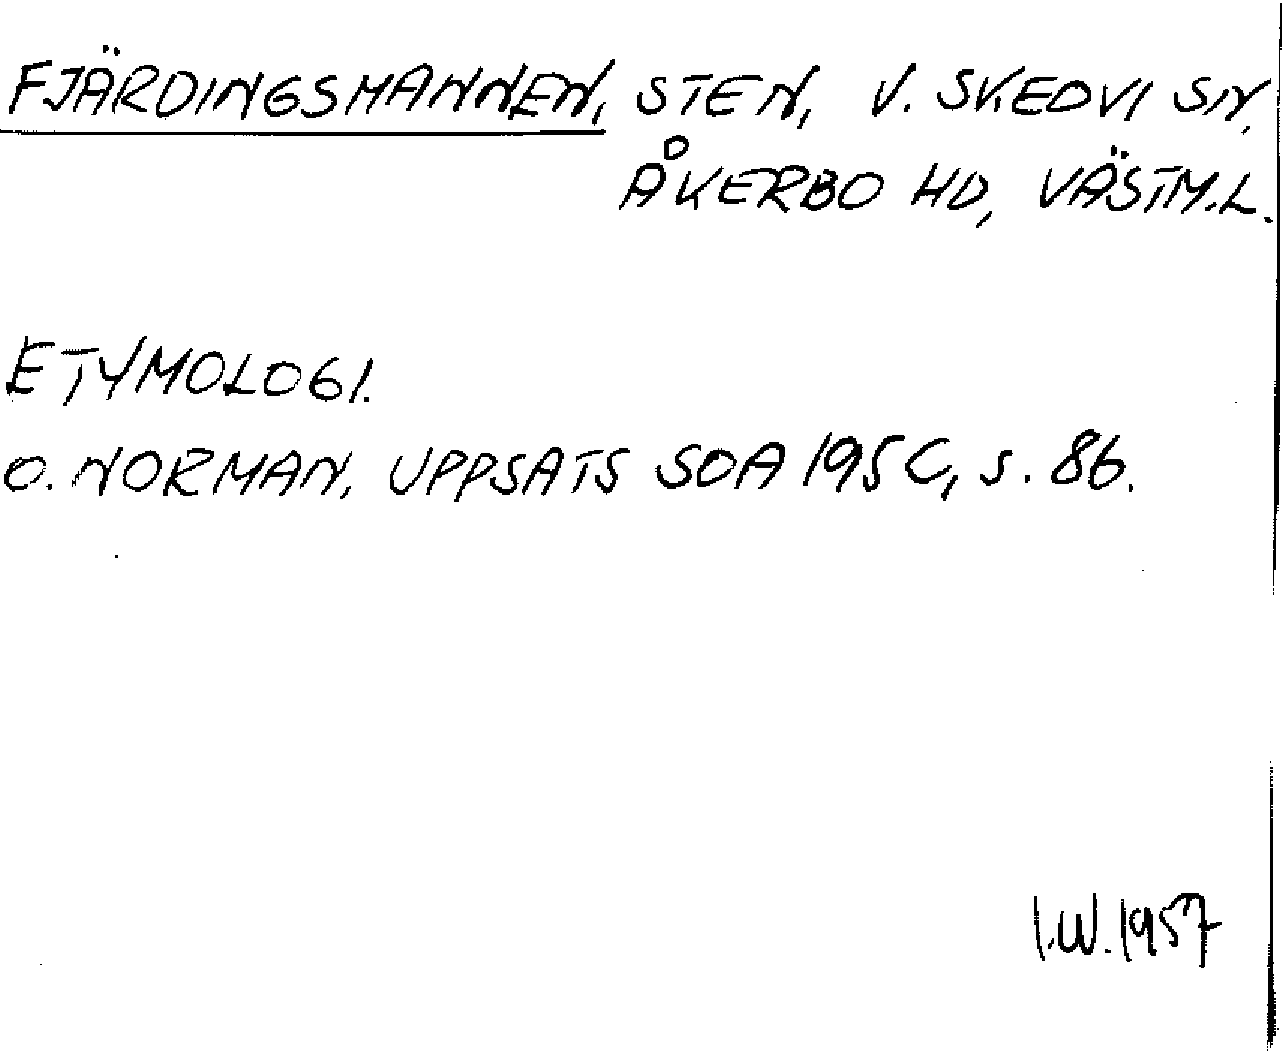 FJÄRDINGSMANNEN, STEN, V. SKEDVI SN,
ÅKERBO HD, VÄSTM.L.
ETYMOLOGI.
O. NORMAN, UPPSATS SOA 1956, s. 86.
I.W. 1957